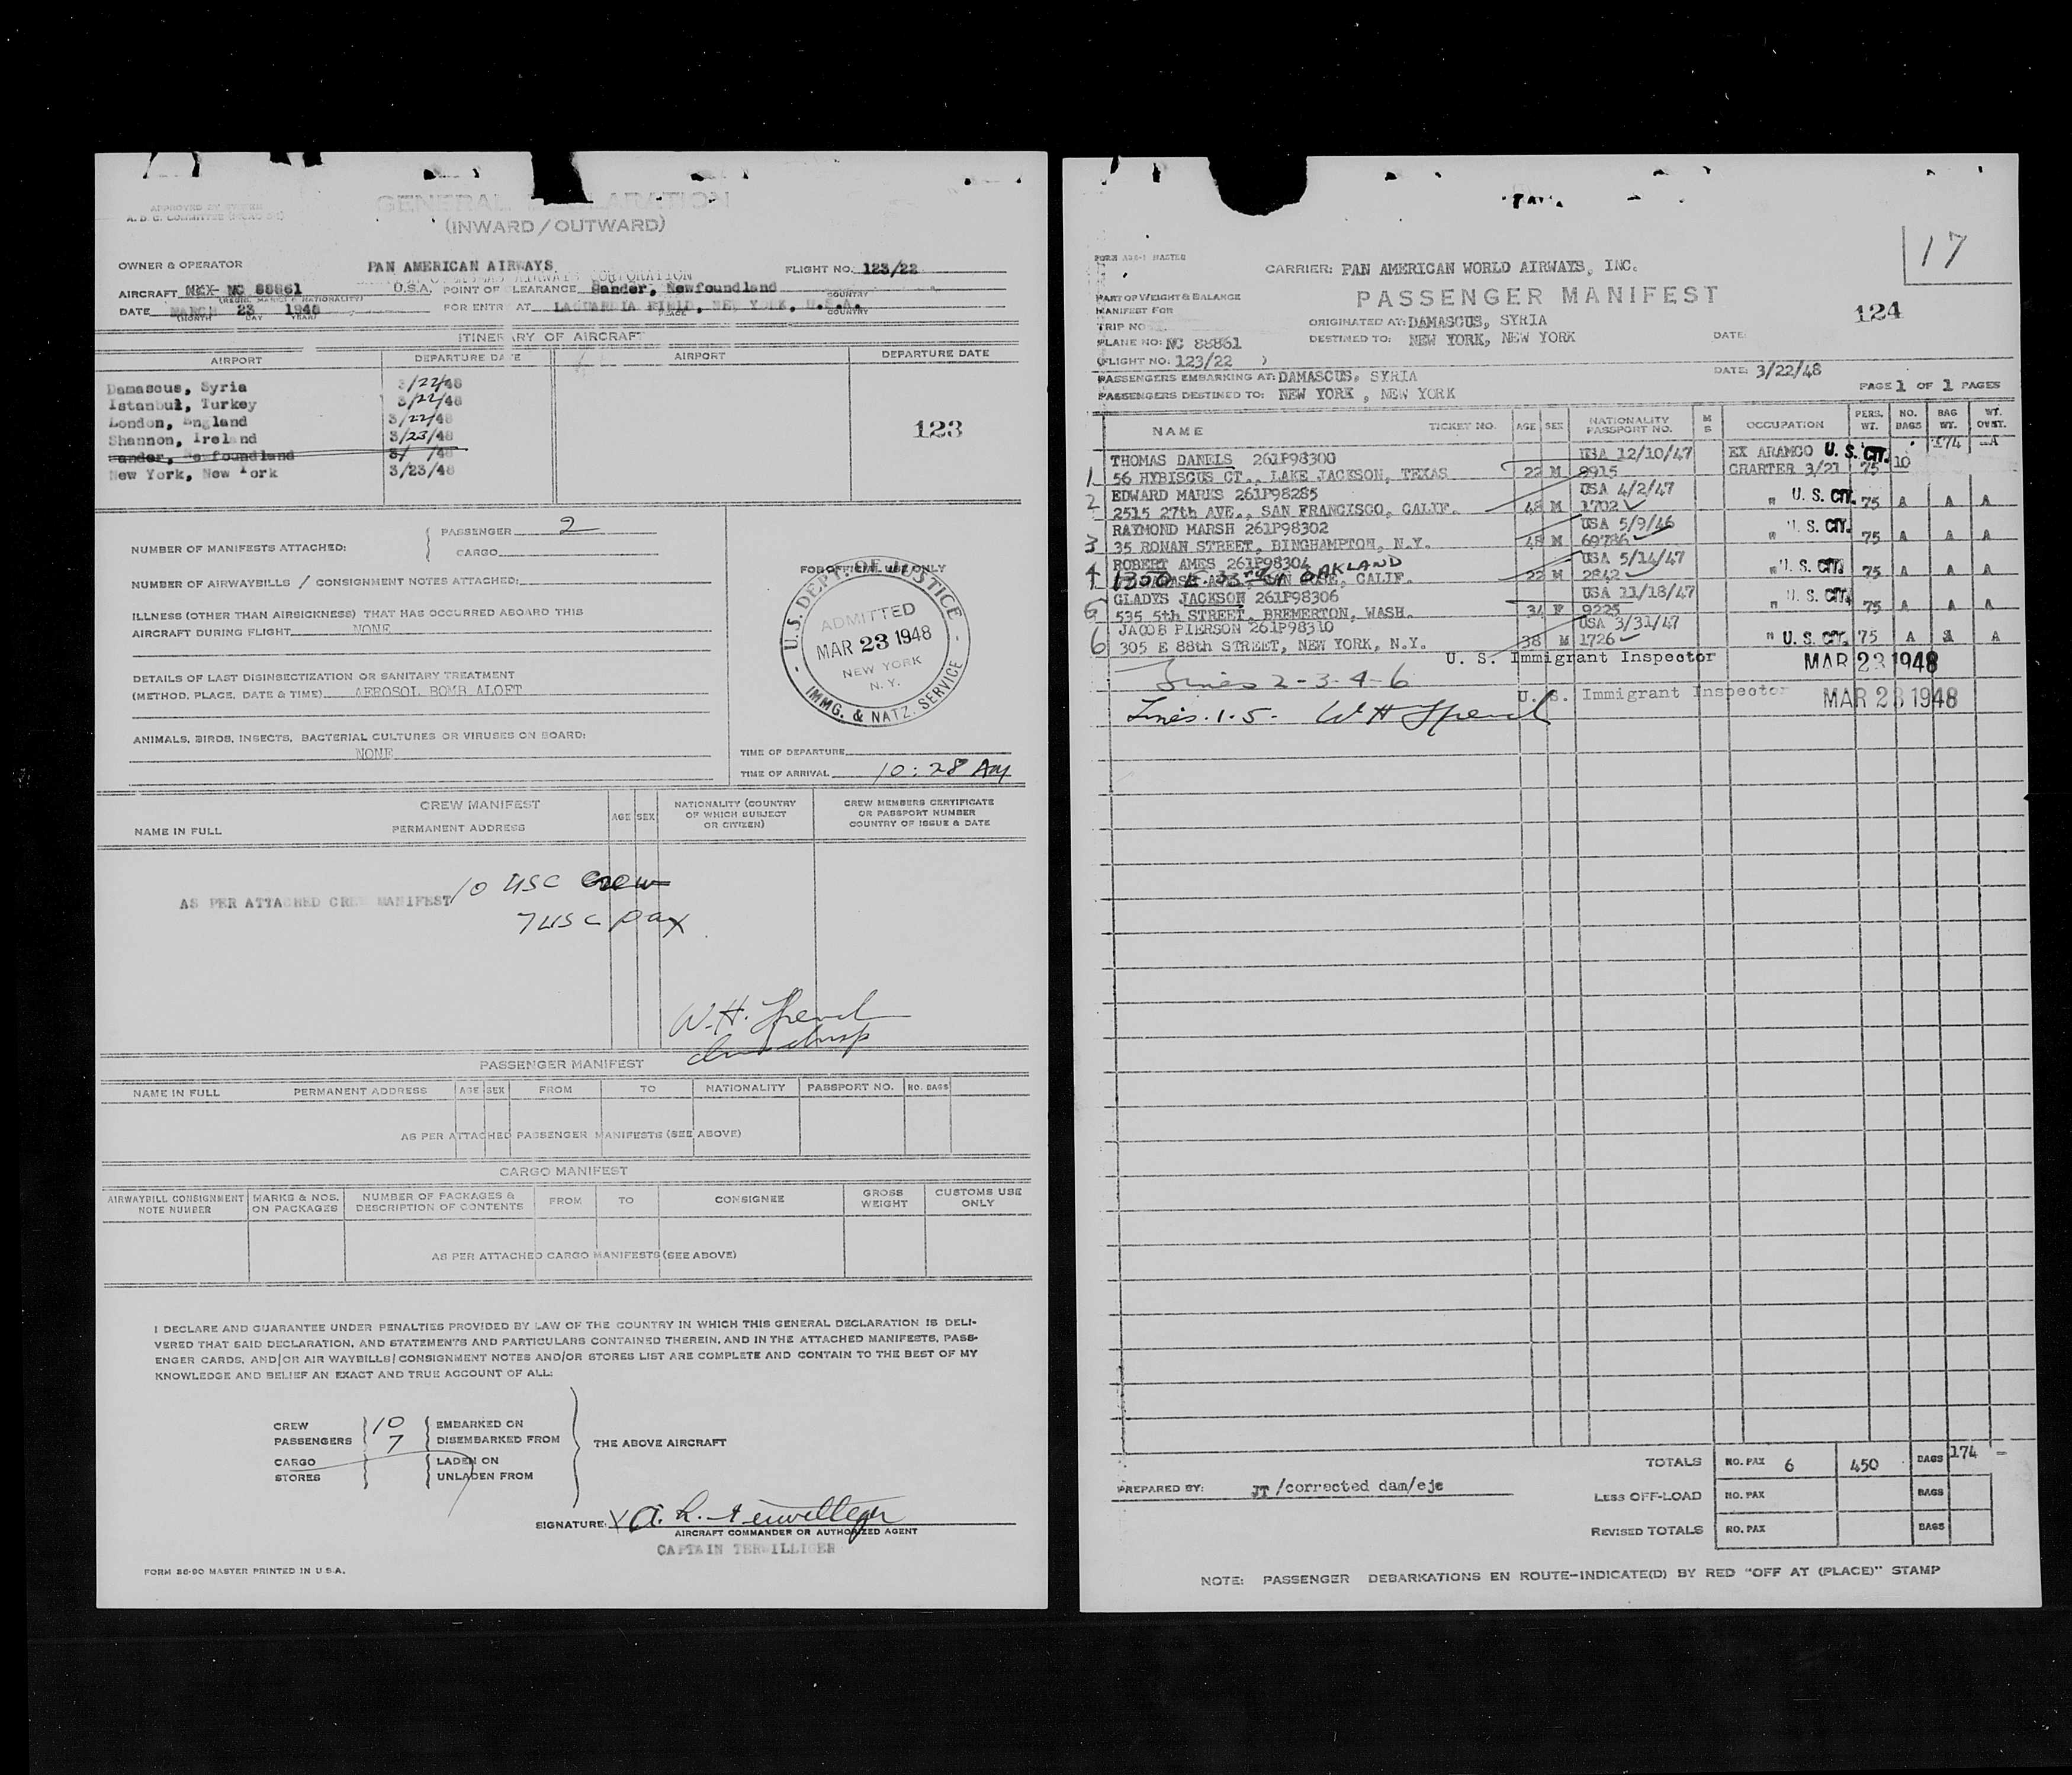 APPROVED BY
A. D. C. COMMITTEE
GENERAL DECLARATION
(INWARD/OUTWARD)
OWNER & OPERATOR PAN AMERICAN AIRWAYS FLIGHT NO. 123/22
AIRWAYS CORPORATION
AIRCRAFT NC 88861 U.S.A. POINT OF CLEARANCE Gander, Newfoundland
(REGIS. MARKS & NATIONALITY) COUNTRY
DATE MARCH 23 1948 FOR ENTRY AT LAGUARDIA FIELD, NEW YORK, U.S.A.
(MONTH DAY YEAR) PLACE COUNTRY
ITINERARY OF AIRCRAFT
AIRPORT DEPARTURE DATE AIRPORT DEPARTURE DATE
Damascus, Syria 3/22/48
Istanbul, Turkey 3/22/48
London, England 3/22/48
Shannon, Ireland 3/23/48
123
Gander, Newfoundland 3/ /48
New York, New York 3/23/48
NUMBER OF MANIFESTS ATTACHED: PASSENGER 2
CARGO
NUMBER OF AIRWAYBILLS / CONSIGNMENT NOTES ATTACHED:
ILLNESS (OTHER THAN AIRSICKNESS) THAT HAS OCCURRED ABOARD THIS
AIRCRAFT DURING FLIGHT NONE
DETAILS OF LAST DISINSECTIZATION OR SANITARY TREATMENT
(METHOD, PLACE, DATE & TIME) AEROSOL BOMB ALOFT
ANIMALS, BIRDS, INSECTS, BACTERIAL CULTURES OR VIRUSES ON BOARD:
NONE
FOR OFFICIAL USE ONLY
U.S. DEPT. OF JUSTICE
ADMITTED
MAR 23 1948
NEW YORK
N. Y.
IMMG. & NATZ. SERVICE
TIME OF DEPARTURE
TIME OF ARRIVAL 10:28 AM
CREW MANIFEST
NAME IN FULL PERMANENT ADDRESS AGE SEX NATIONALITY (COUNTRY OF WHICH SUBJECT OR CITIZEN) CREW MEMBERS CERTIFICATE OR PASSPORT NUMBER COUNTRY OF ISSUE & DATE
AS PER ATTACHED CREW MANIFEST 10 USC Crew
7 USC pax
W. H.
PASSENGER MANIFEST
NAME IN FULL PERMANENT ADDRESS AGE SEX FROM TO NATIONALITY PASSPORT NO. NO. BAGS
AS PER ATTACHED PASSENGER MANIFESTS (SEE ABOVE)
CARGO MANIFEST
AIRWAYBILL CONSIGNMENT NOTE NUMBER MARKS & NOS. ON PACKAGES NUMBER OF PACKAGES & DESCRIPTION OF CONTENTS FROM TO CONSIGNEE GROSS WEIGHT CUSTOMS USE ONLY
AS PER ATTACHED CARGO MANIFESTS (SEE ABOVE)
I DECLARE AND GUARANTEE UNDER PENALTIES PROVIDED BY LAW OF THE COUNTRY IN WHICH THIS GENERAL DECLARATION IS DELI-
VERED THAT SAID DECLARATION, AND STATEMENTS AND PARTICULARS CONTAINED THEREIN, AND IN THE ATTACHED MANIFESTS, PASS-
ENGER CARDS, AND/OR AIR WAYBILLS/CONSIGNMENT NOTES AND/OR STORES LIST ARE COMPLETE AND CONTAIN TO THE BEST OF MY
KNOWLEDGE AND BELIEF AN EXACT AND TRUE ACCOUNT OF ALL:
CREW 10 EMBARKED ON
PASSENGERS 7 DISEMBARKED FROM THE ABOVE AIRCRAFT
CARGO LADEN ON
STORES UNLADEN FROM
SIGNATURE: X A. L. Terwilleger
AIRCRAFT COMMANDER OR AUTHORIZED AGENT
CAPTAIN TERWILLIGER
FORM 86-90 MASTER PRINTED IN U.S.A.
17
CARRIER: PAN AMERICAN WORLD AIRWAYS, INC.
PART OF WEIGHT & BALANCE
MANIFEST FOR
PASSENGER MANIFEST
124
TRIP NO
ORIGINATED AT: DAMASCUS, SYRIA
PLANE NO: NC 88861 DESTINED TO: NEW YORK, NEW YORK DATE:
(FLIGHT NO. 123/22 )
PASSENGERS EMBARKING AT: DAMASCUS, SYRIA DATE: 3/22/48
PASSENGERS DESTINED TO: NEW YORK , NEW YORK PAGE 1 OF 1 PAGES
NAME TICKET NO. AGE SEX NATIONALITY PASSPORT NO. M S OCCUPATION PERS. WT. NO. BAGS BAG WT. WT. OVWT.
THOMAS DANELS 261P98300 USA 12/10/47 EX ARAMCO U. S. CIT. 174 A
1 56 HYBISCUS CT., LAKE JACKSON, TEXAS 22 M 9915 CHARTER 3/21 75 10
EDWARD MARKS 261P98285 USA 4/2/47
2 2515 27th AVE., SAN FRANCISCO, CALIF. 48 M 1702 " U. S. CIT. 75 A A A
RAYMOND MARSH 261P98302 USA 5/9/46
3 35 RONAN STREET, BINGHAMPTON, N.Y. 48 M 69786 " U. S. CIT. 75 A A A
ROBERT AMES 261P98304 USA 5/14/47
4 1300 E. 33rd St OAKLAND, CALIF. 22 M 2842 " U. S. CIT. 75 A A A
GLADYS JACKSON 261P98306 USA 11/18/47
5 535 5th STREET, BREMERTON, WASH. 34 F 9225 " U. S. CIT. 75 A A A
JACOB PIERSON 261P98310 USA 3/31/47
6 305 E 88th STREET, NEW YORK, N.Y. 38 M 1726 " U. S. CIT. 75 A A A
U. S. Immigrant Inspector MAR 23 1948
Lines 2-3-4-6
U. S. Immigrant Inspector MAR 23 1948
Lines. 1. 5. W H
TOTALS NO. PAX 6 450 BAGS 174 -
PREPARED BY: JT /corrected dam/eje
LESS OFF-LOAD NO. PAX BAGS
REVISED TOTALS NO. PAX BAGS
NOTE: PASSENGER DEBARKATIONS EN ROUTE-INDICATE(D) BY RED "OFF AT (PLACE)" STAMP